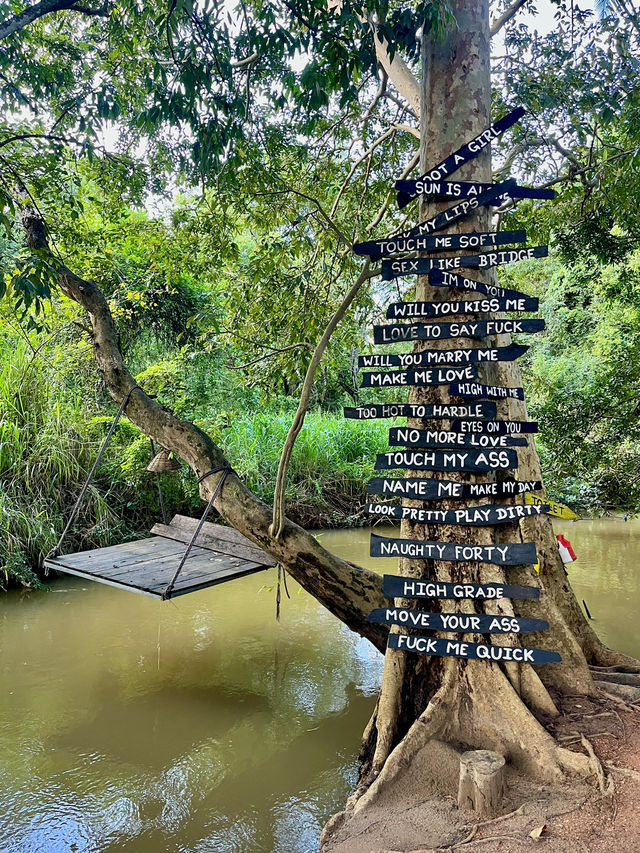 OOT A GIRL
SUN IS AL
MY LIPS
TOUCH ME SOFT
SEX LIKE BRIDGE
IM ON YOU
WILL YOU KISS ME
LOVE TO SAY FUCK
WILL YOU MARRY ME
MAKE ME LOVE
HIGH WITH ME
TOO HOT TO HARDLE
EYES ON YOU
NO MORE LOVE
TOUCH MY ASS
NAME ME MAKE MY DAY
LOOK PRETTY PLAY DIRTY
NAUGHTY FORTY
HIGH GRADE
MOVE YOUR ASS
FUCK ME QUICK